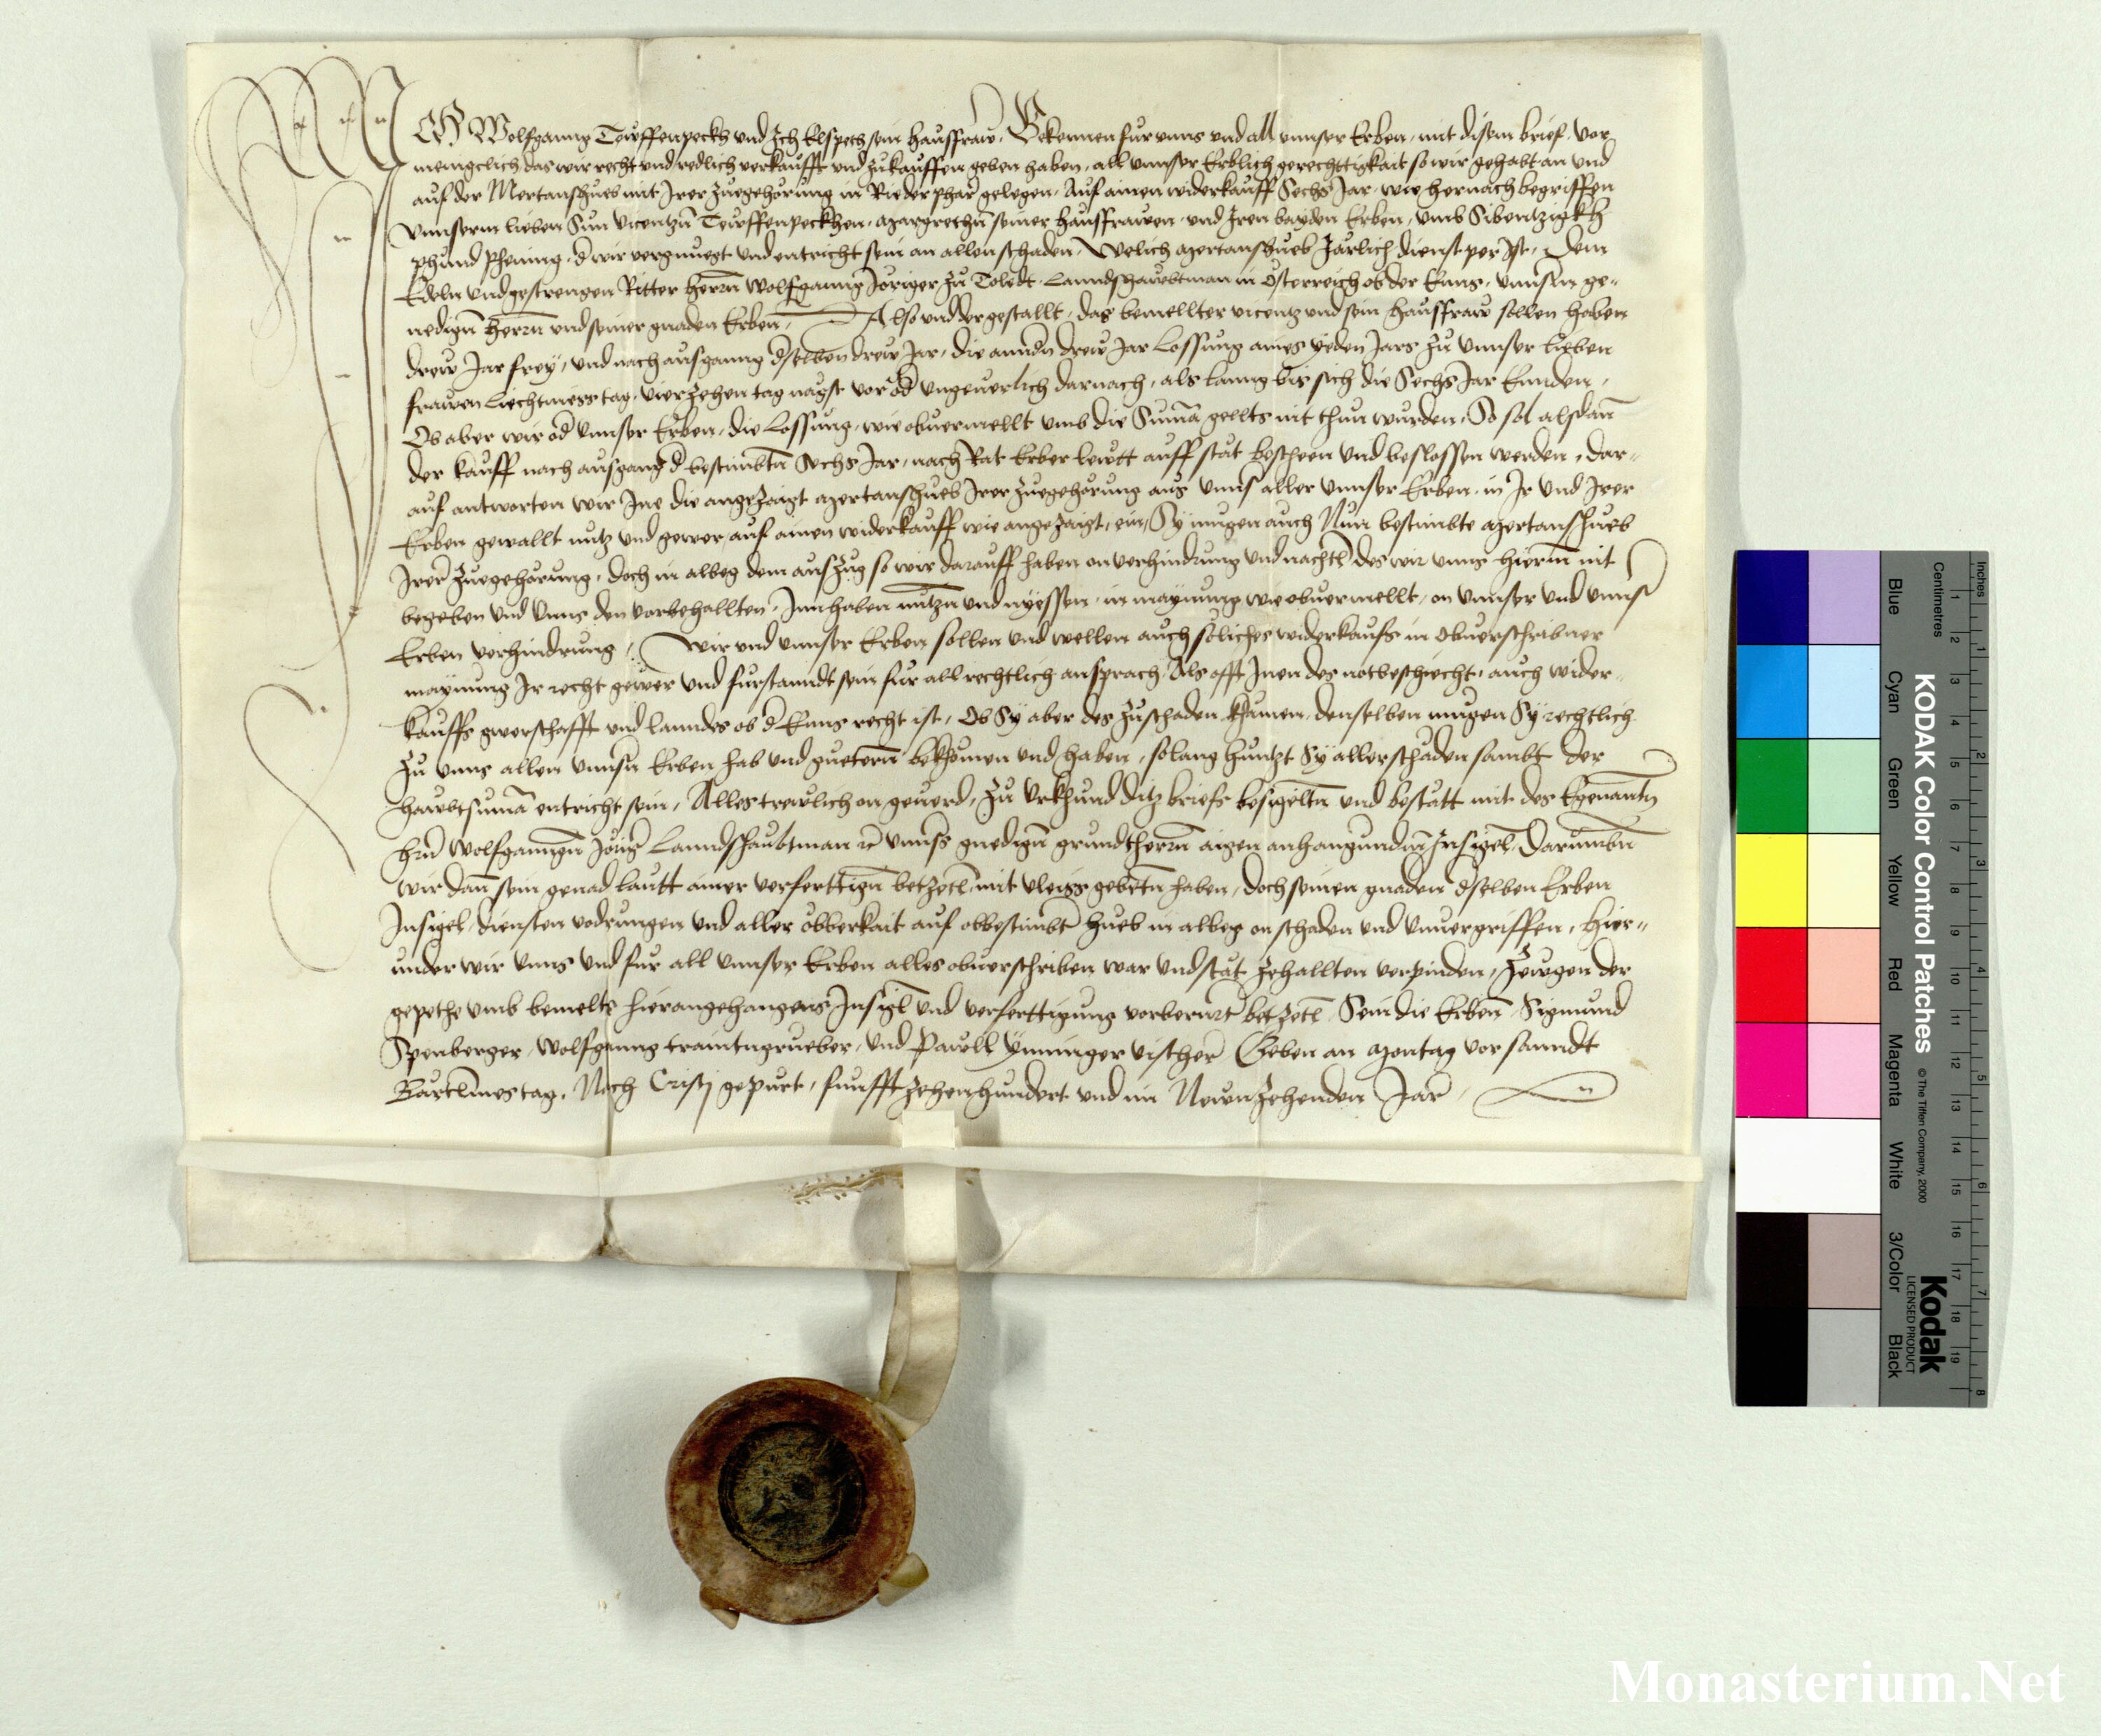 ICH Wolfganng Tewffenpeckh und Ich Elspeth sein hausfraw, Bekennen fur unns und all unnser Erben, mit disem brief, vor
meingclich das wir recht und redlich verkaufft und zukauffen geben haben, all unnser Erblich gerechtigkait so wir gehabt an und
auf der Mertanshueb mit Irer zuegehorung in Rieder phar gelegen, Auf ainen widerkauff Sechs Jar, wie hernach begriffen
unnserm lieben Sun vicentzn̄ Tewffenpeckhen, margrethn̄ seiner hausfrawen und Iren bayden Erben, umb Sibentzigkh
phund phening, d̄ wir vergnuegt und entricht sein an allen schaden, Welich mertanshueb Järlich dienstper ist, Dem
Edeln und gestrengen Ritter herrn̄ Wolfganng Jöriger zu Toledt Lanndshawbtman in Osterreich ob der Enns, unnserm ge-
nedign̄ herrn̄ und seiner gnaden Erben, Also und der gestallt, das bemellter vicentz und sein hausfraw sollen haben
drew Jar frey, und nach ausganng d̄selben drew Jar, die anndn̄ drew Jar Lossung aines yeden Jars zu unnser lieben
frawen Liechtmess tag, vierzehen tag nagst vor od̄ ungeuerlich darnach, als lanng bis sich die Sechs Jar Ennden,
Ob aber wir od̄ unnser Erben, die Lossung, wie obuermellt umb die Sum̄a gellts nit thun wurden, So sol alsdan̄
der kauff nach ausgang d̄ bestimbtn̄ Sechs Jar, nach Rat Erber lewtt auff stät bescheen und beslossen werden, Dar-
auf antworten wir Ine die angezaigt mertanshueb Irer zuegehorung aus unnser aller unnser Erben, in Ir und Irer
Erben gewallt nutz und gewer, auf ainen widerkauff wie angezaigt, ein, Sy mugen auch Nun bestimbte mertanshueb
Irer zuegehorung, doch in albeg dem auszug so wir darauff haben on verhindrung und nachtl̄ des wir unns hierin̄ nit
begeben und unns den vorbehallten, Innhaben nutzn̄ und nyessen, in maynung wie obuermellt, on unnser und unns̄
Erben verhindrung, Wir und unnser Erben sollen und wellen auch soliches widerkaufs in obuerschribner
maynung Ir recht gewer und furstanndt sein fur all rechtlich ansprach, Als offt Inen des not beschiecht, auch wider-
kauffs gwerschafft und lanndes ob d̄ Enns recht ist, Ob Sy aber des zu schaden khumen, denselben mugen Sy rechtlich
zu unns allen unnsn̄ Erben hab und guetern̄ bekhomen und haben, solang huntzt Sy aller schaden sambt der
hawbtsum̄a entricht sein, Alles trewlich on geuerd, Zu urkhund ditz briefs besigeltn̄ und bestätt mit des Egenantn̄
hrn̄ Wolfganngn̄ Joriḡ Lanndshaubtman rc̄ unnss̄ gnedign̄ grundtherrn̄ aigen anhangundn̄ Insigel, Darumbn̄
wir dan̄ sein genad lautt ainer verferttign̄ betzetl, mit vleiss gebetn̄ haben, doch seinen gnaden d̄selben Erben
Insigel, diensten vodrungen und aller obberkait auf obbestimbt̄ hueb in albeg on schaden und unuergriffen, Hier-
under wir unns und fur all unnser Erben alles obuerschriben war und stät zehallten verpinden, Zewgen der
gepethe umb bemelts hierangehangens Insigl̄ und verferttigung vorberurt̄ betzetl̄ Sein die Erben̄ Sigmund
Spenberger, Wolfganng und Pawll Ynninger vischer̄ Geben an montag vor sanndt
Bartlmes tag, Nach Cristj gepurt, funffzehenhundert und im Newnzehenden Jar̄
KODAK Color Control Patches
© The Tiffen Company, 2000
Kodak
LICENSED PRODUCT
Inches
Centimetres
Blue
Cyan
Green
Yellow
Red
Magenta
White
3/Color
Black
1 2 3 4 5 6 7 8 9 10 11 12 13 14 15 16 17 18 19
1 2 3 4 5 6 7 8
Monasterium.Net